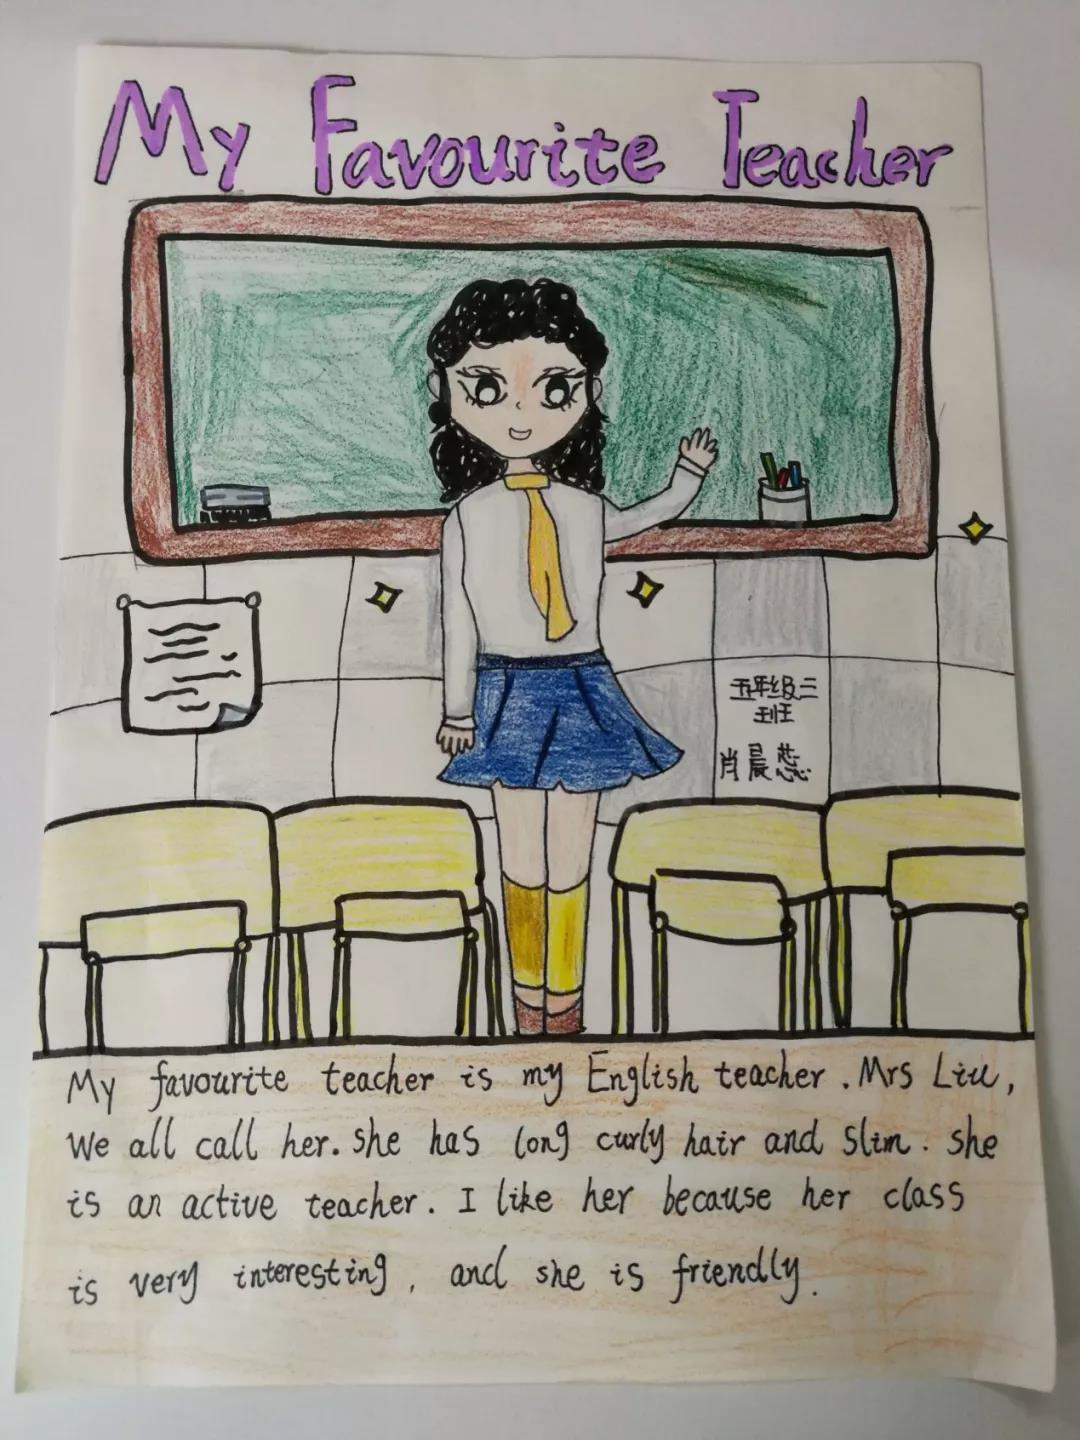 My Favourite Teacher
五年级三
班
肖晨蕊
My favourite teacher is my English teacher. Mrs Liu,
We all call her. she has long curly hair and slim. she
is an active teacher. I like her because her class
is very interesting, and she is friendly.